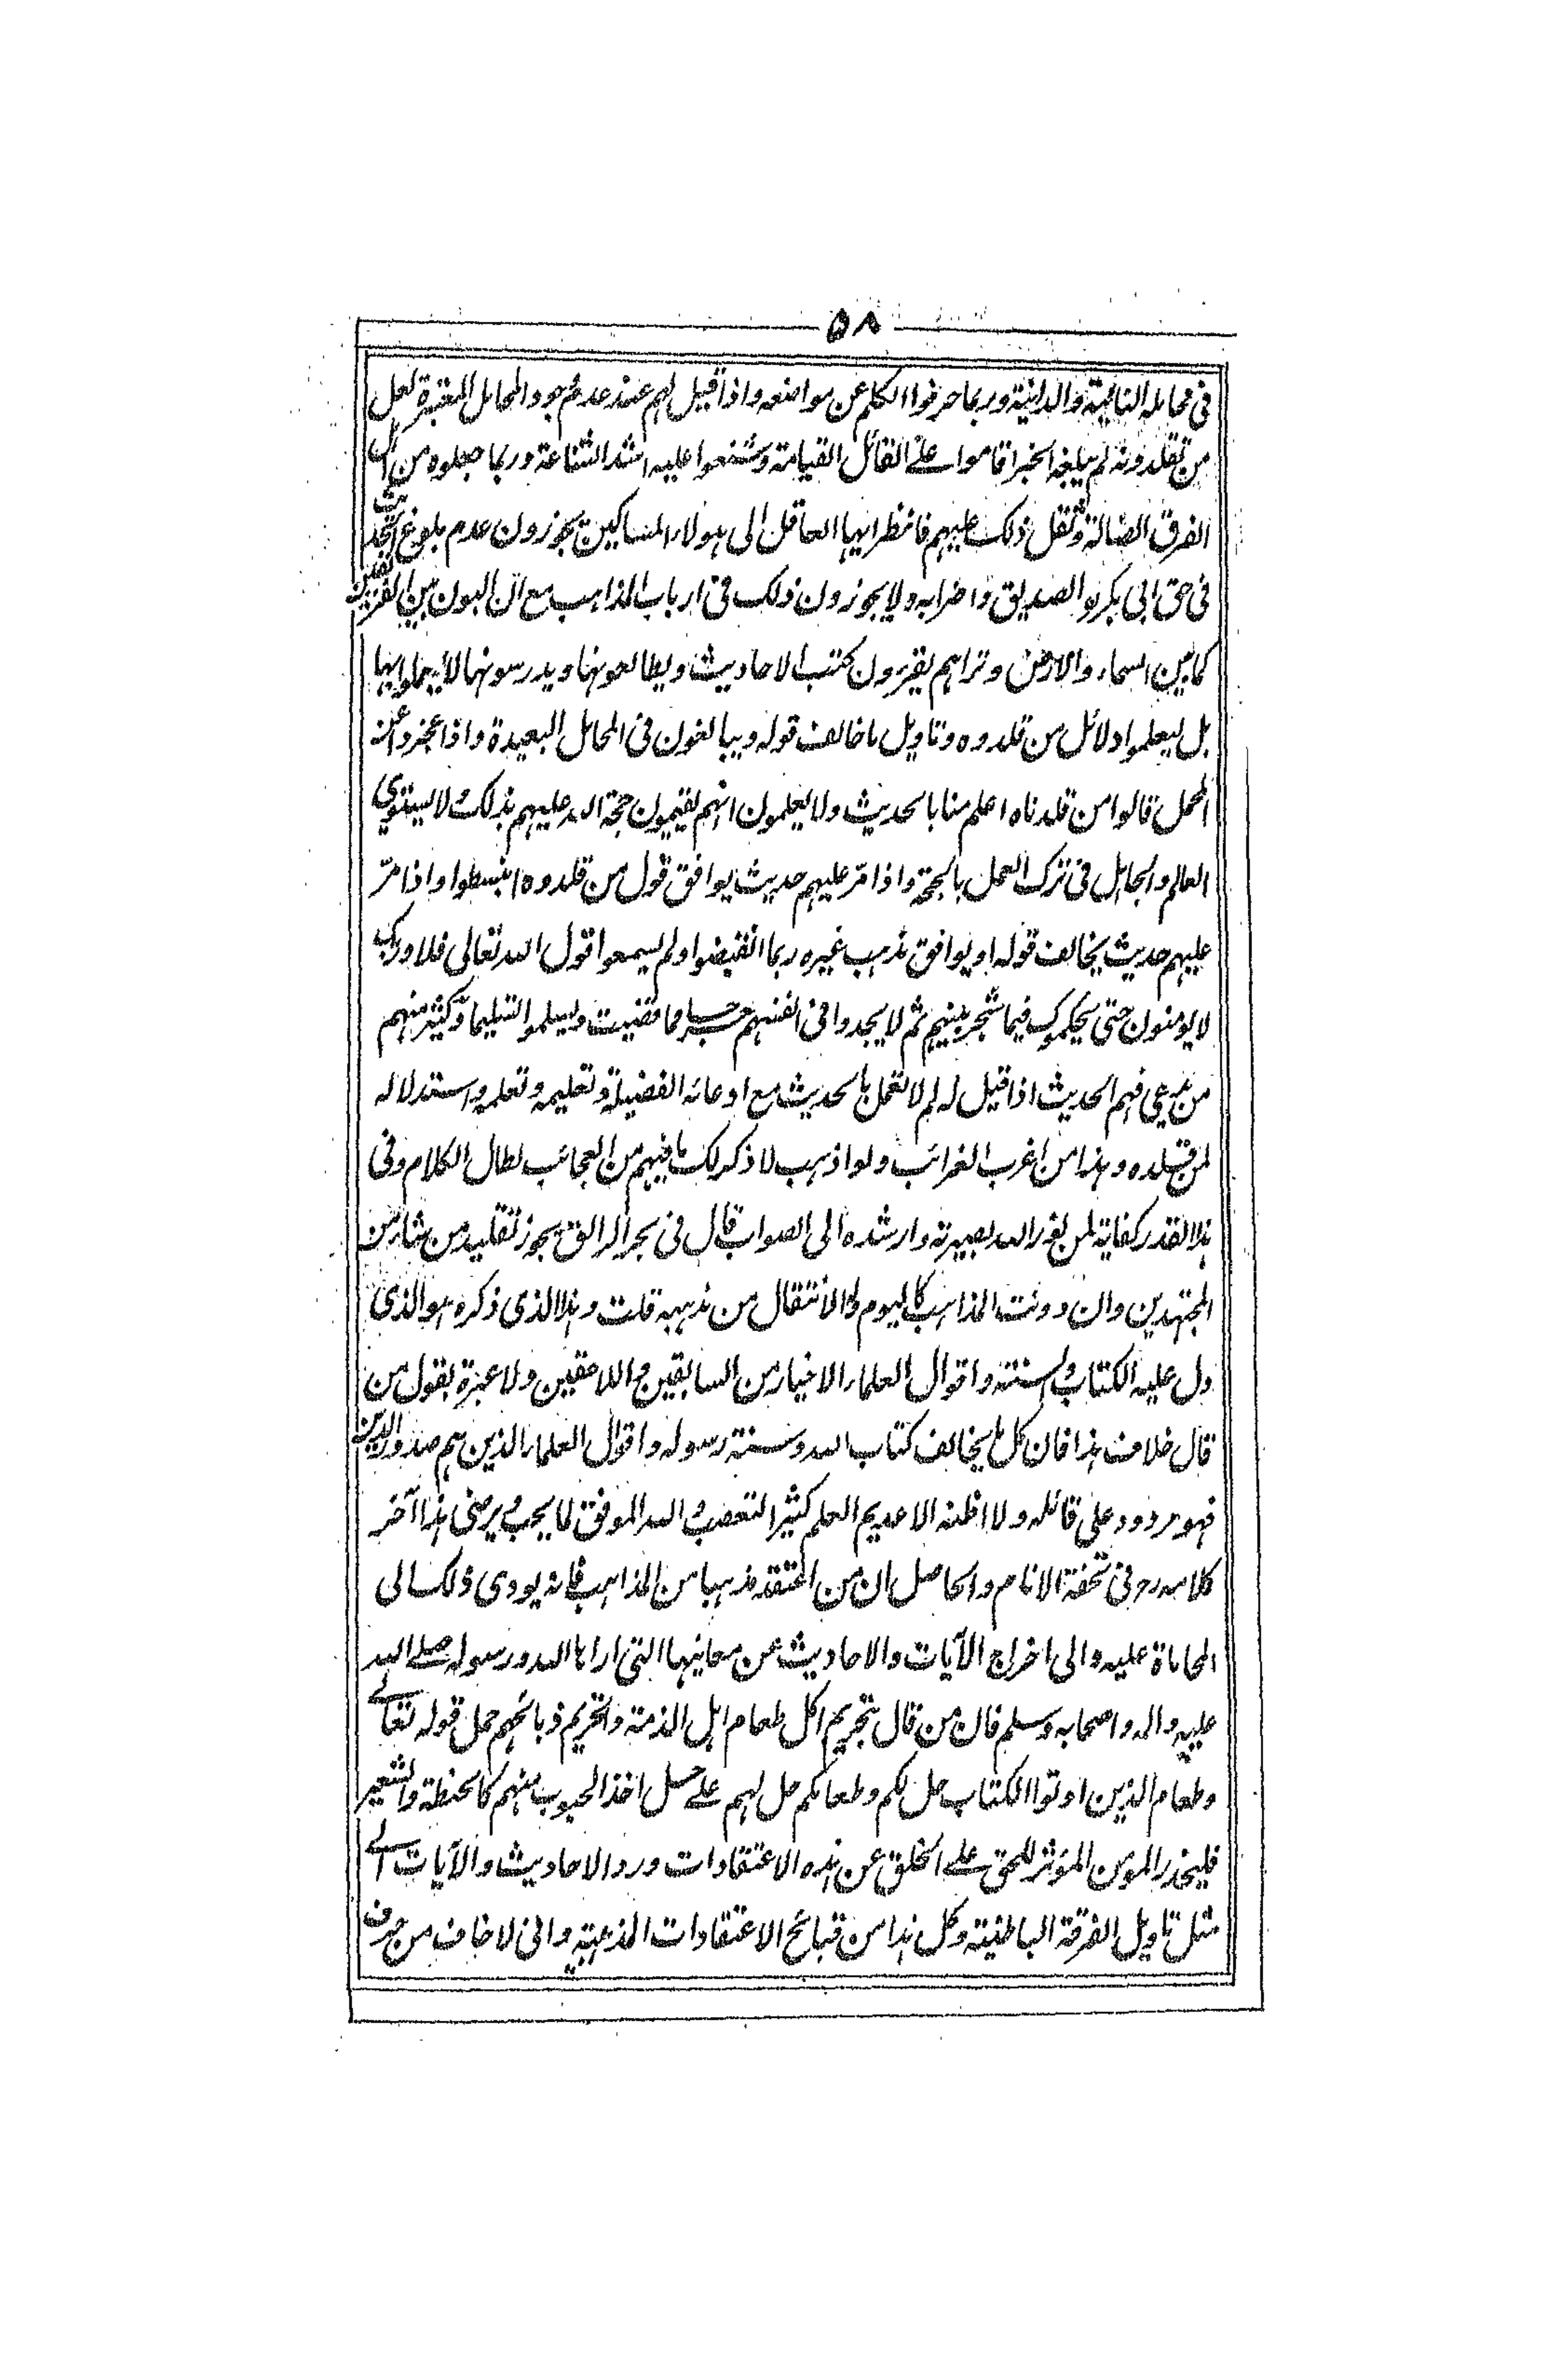 ٥٨
فى محامله النائية والدانية وربما حرفوا الكلم عن مواضعه واذا قيل لهم عند عدم وجود المحامل المعتبرة لعل
من تقلدونه لم يبلغه الخبر اقاموا على القائل القيامة وشنعوا عليه اشد الشناعة وربما جعلوه من اهل
الفرق الضالة وثقل ذلك عليهم فانظر ايها العاقل الى هولاء المساكين يجوزون عدم بلوغ الحديث
فى حق ابى بكر الصديق واضرابه ولا يجوزون ذلك فى ارباب المذاهب مع ان البون بين الفريقين
كما بين السماء والارض وتراهم يقرؤن كتب الاحاديث ويطالعونها ويدرسونها لا ليعملوا بها
بل ليعلموا دلائل من قلدوه وتاويل ما خالف قوله ويبالغون فى المحامل البعيدة واذا عجزوا عن
المحمل قالوا من قلدناه اعلم منا بالحديث ولا يعلمون انهم يقيمون حجة الله عليهم بذلك ولا يستوى
العالم والجاهل فى ترك العمل بالحجة واذا مرّ عليهم حديث يوافق قول من قلدوه انبسطوا واذا مرّ
عليهم حديث يخالف قوله او يوافق مذهب غيره ربما انقبضوا ولم يسمعوا قول الله تعالى فلا وربك
لا يومنون حتى يحكموك فيما شجر بينهم ثم لا يجدوا فى انفسهم حرجا مما قضيت ويسلموا تسليما وكثير منهم
من يدعى فهم الحديث اذا قيل له لم لا تعمل بالحديث مع ادعائه الفضيلة وتعليمه وتعلمه واستدلاله
لمن قلده وهذا من اغرب الغرائب ولو اذهب لاذكر لك ما فيهم من العجائب لطال الكلام وفى
هذا القدر كفاية لمن نور الله بصيرته وارشده الى الصواب قال فى بحر الرائق يجوز تقليد من شاء من
المجتهدين وان دونت المذاهب كاليوم وله الانتقال من مذهبه قلت وهذا الذى ذكره هو الذى
دل عليه الكتاب والسنة واقوال العلماء الاخيار من السابقين واللاحقين ولا عبرة بقول من
قال خلاف هذا فان كل ما يخالف كتاب الله وسنة رسوله واقوال العلماء الذين هم صدور الدين
فهو مردود على قائله ولا اظنه الا عديم العلم كثير التعصب والله الموفق لما يحب ويرضى هذا آخر
كلامه رح فى تحفة الانام والحاصل ان من اعتقد مذهبا من المذاهب فانه يودى ذلك الى
المحاماة عليه والى اخراج الآيات والاحاديث عن معانيها التى ارادها الله ورسوله صلى الله
عليه واله واصحابه وسلم فان من قال بتحريم اكل طعام اهل الذمة وتحريم ذبائحهم حمل قوله تعالى
وطعام الذين اوتوا الكتاب حل لكم وطعامكم حل لهم على حل اخذ الحبوب منهم كالحنطة والشعير
فليحذر المومن المؤثر للحق على الخلق عن هذه الاعتقادات ورد الاحاديث والآيات الى
مثل تاويل الفرقة الباطنية وكل هذا من قبائح الاعتقادات المذهبية وانى لاخاف من حرف